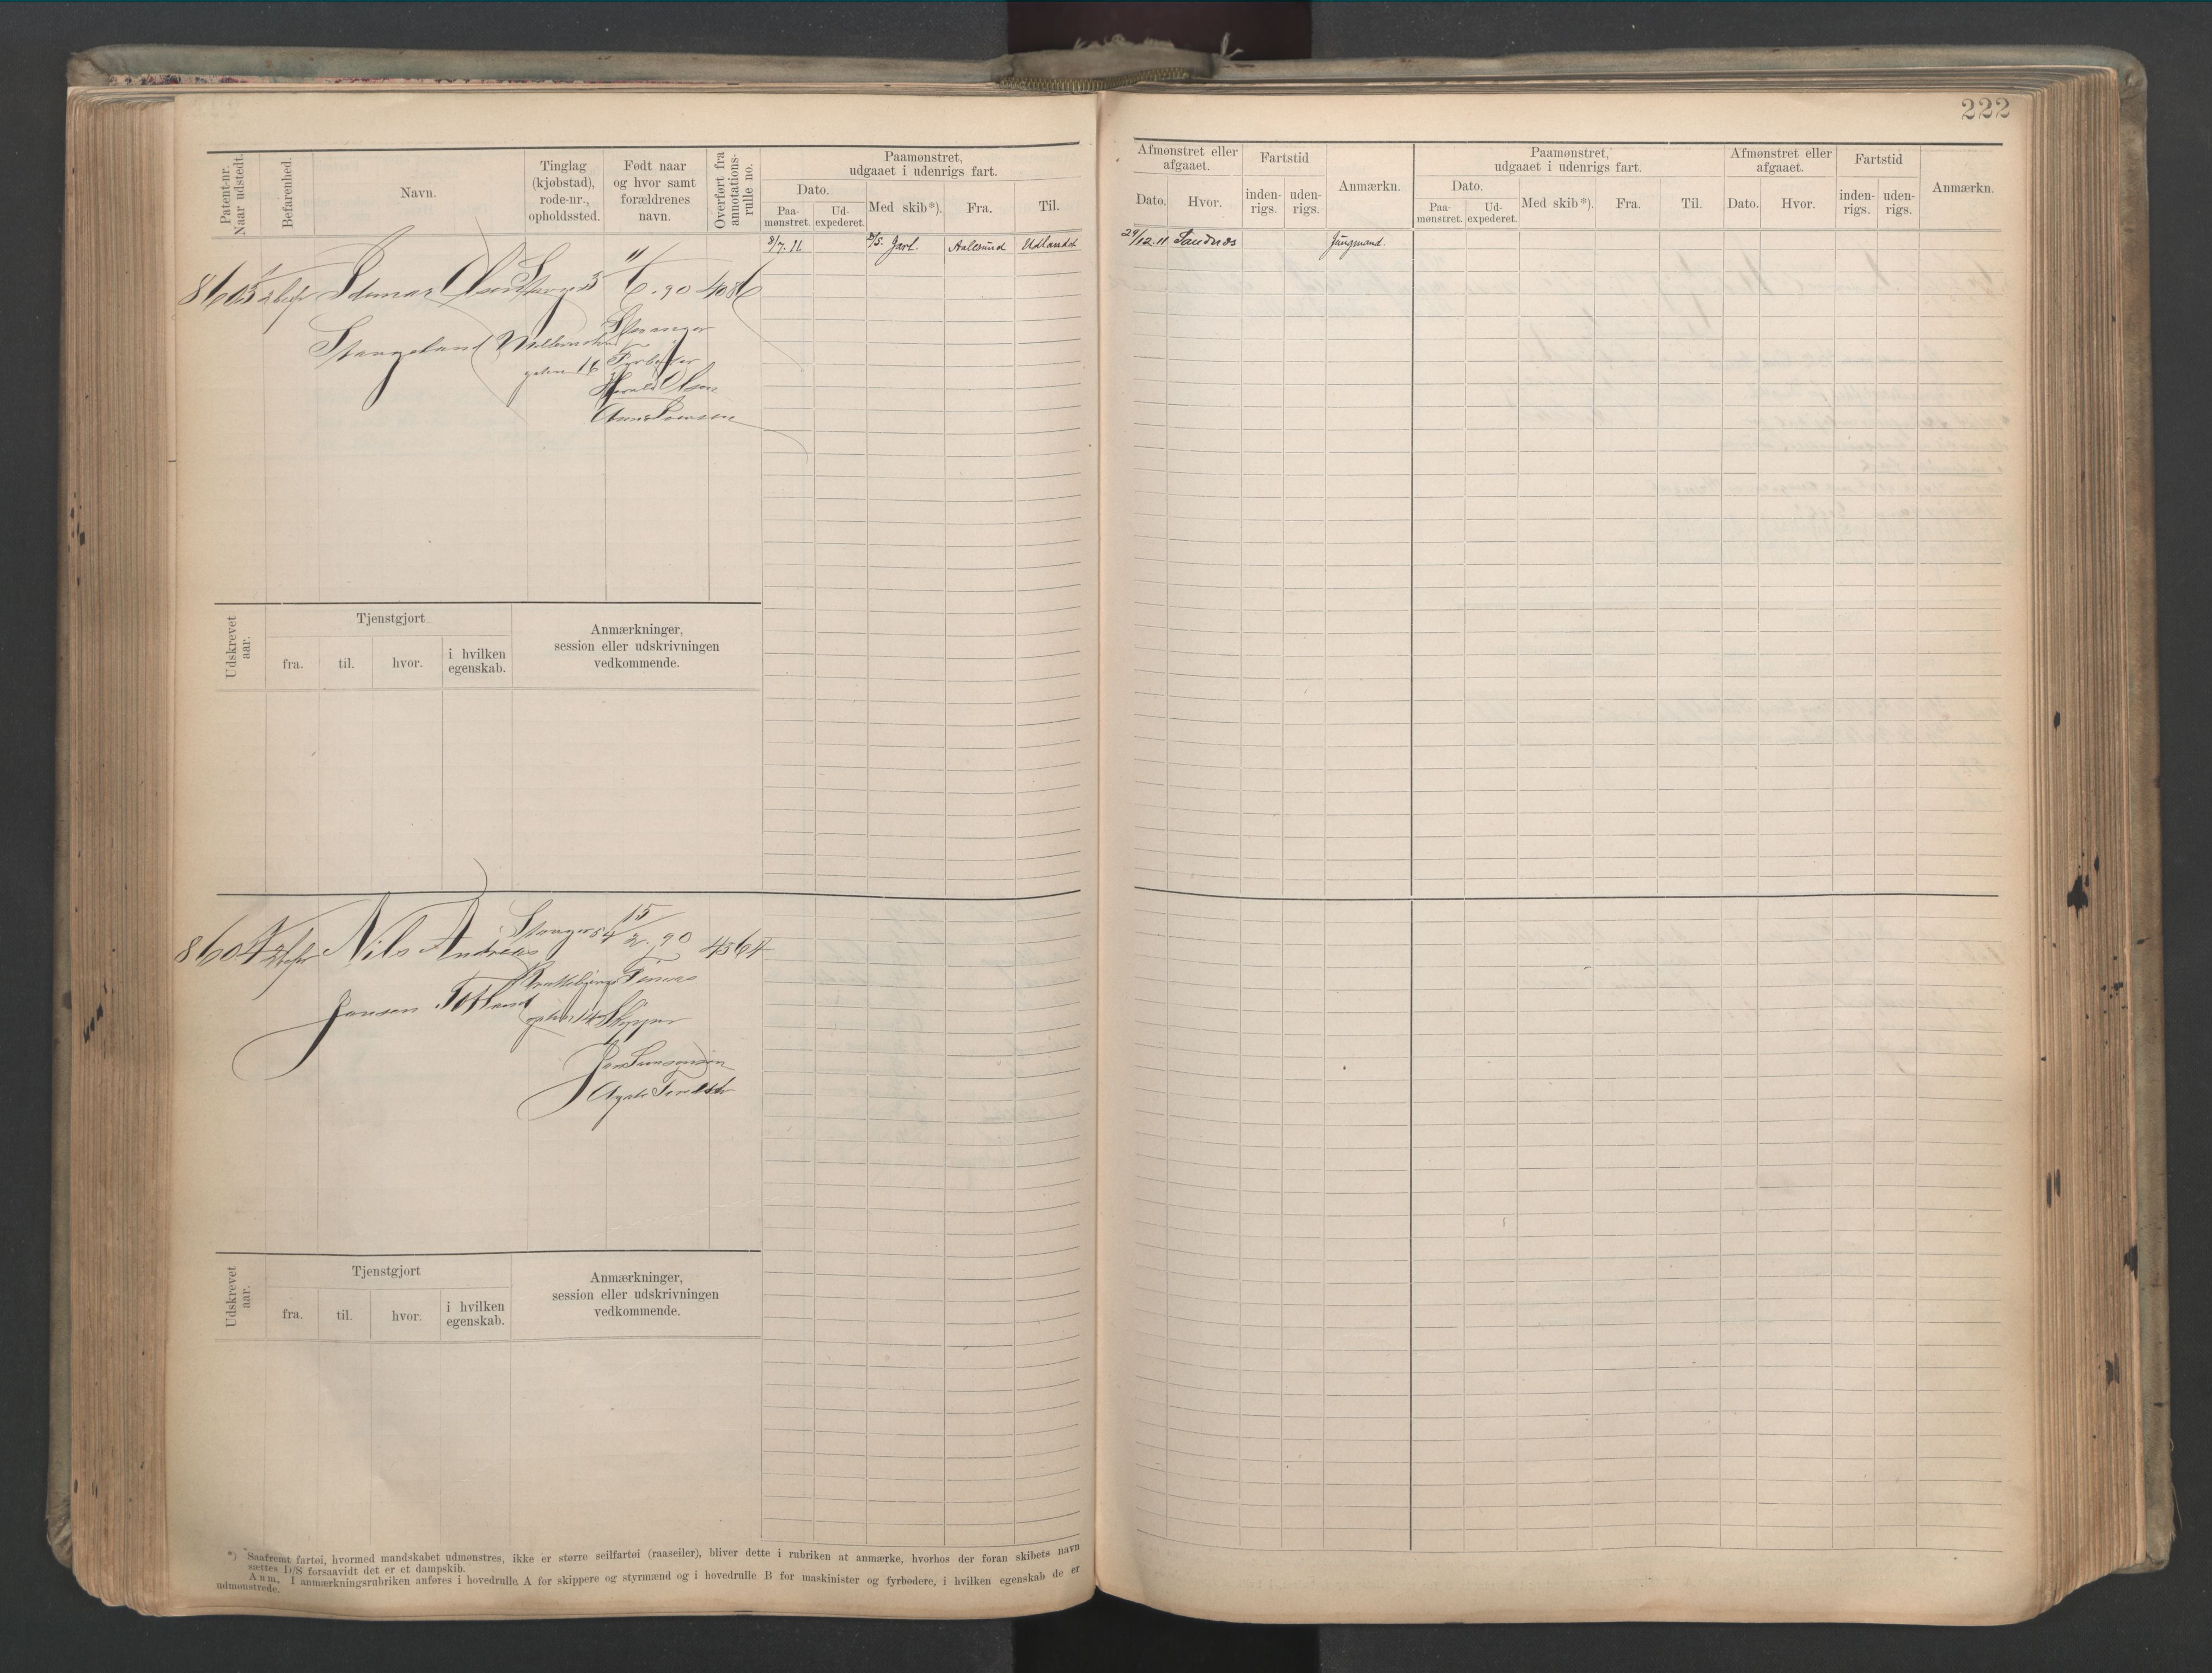 222
Patent-nr. Naar udstedt.
Befarenhed.
Navn.
Tinglag (kjøbstad), rode-nr., opholdssted.
Født naar og hvor samt forældrenes navn.
Overført fra annotations-rulle no.
Paamønstret, udgaaet i udenrigs fart.
Dato.
Paa-mønstret.
Ud-expederet.
Med skib*).
Fra.
Til.
Afmønstret eller afgaaet.
Dato.
Hvor.
Fartstid
inden-rigs.
uden-rigs.
Anmærkn.
Paamønstret, udgaaet i udenrigs fart.
Dato.
Paa-mønstret.
Ud-expederet.
Med skib*).
Fra.
Til.
Afmønstret eller afgaaet.
Dato.
Hvor.
Fartstid
inden-rigs.
uden-rigs.
Anmærkn.
8/7.11. D/S. Jarl. Aalesund Udlandet 29/12.11 Sandnæs Jungmand.
8603 Olsen Stavanger 11/6.90 4086
Stangeland
Stavanger
gaden 16
Harald Olsen
Udskrevet aar.
Tjenstgjort
fra.
til.
hvor.
i hvilken egenskab.
Anmærkninger, session eller udskrivningen vedkommende.
8604 Nils Andreas Stavanger 54 15/2.90 4564
Jansen Totland
gaden 14 Skipper
Udskrevet aar.
Tjenstgjort
fra.
til.
hvor.
i hvilken egenskab.
Anmærkninger, session eller udskrivningen vedkommende.
*) Saafremt fartøi, hvormed mandskabet udmønstres, ikke er større seilfartøi (raaseiler), bliver dette i rubriken at anmærke, hvorhos der foran skibets navn
sættes D/S forsaavidt det er et dampskib.
Anm. I anmærkningsrubriken anføres i hovedrulle A for skippere og styrmænd og i hovedrulle B for maskinister og fyrbødere, i hvilken egenskab de er
udmønstrede.